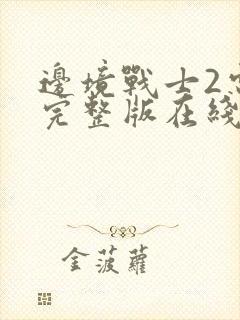 邊境戰士2
完整版在綫
金菠蘿